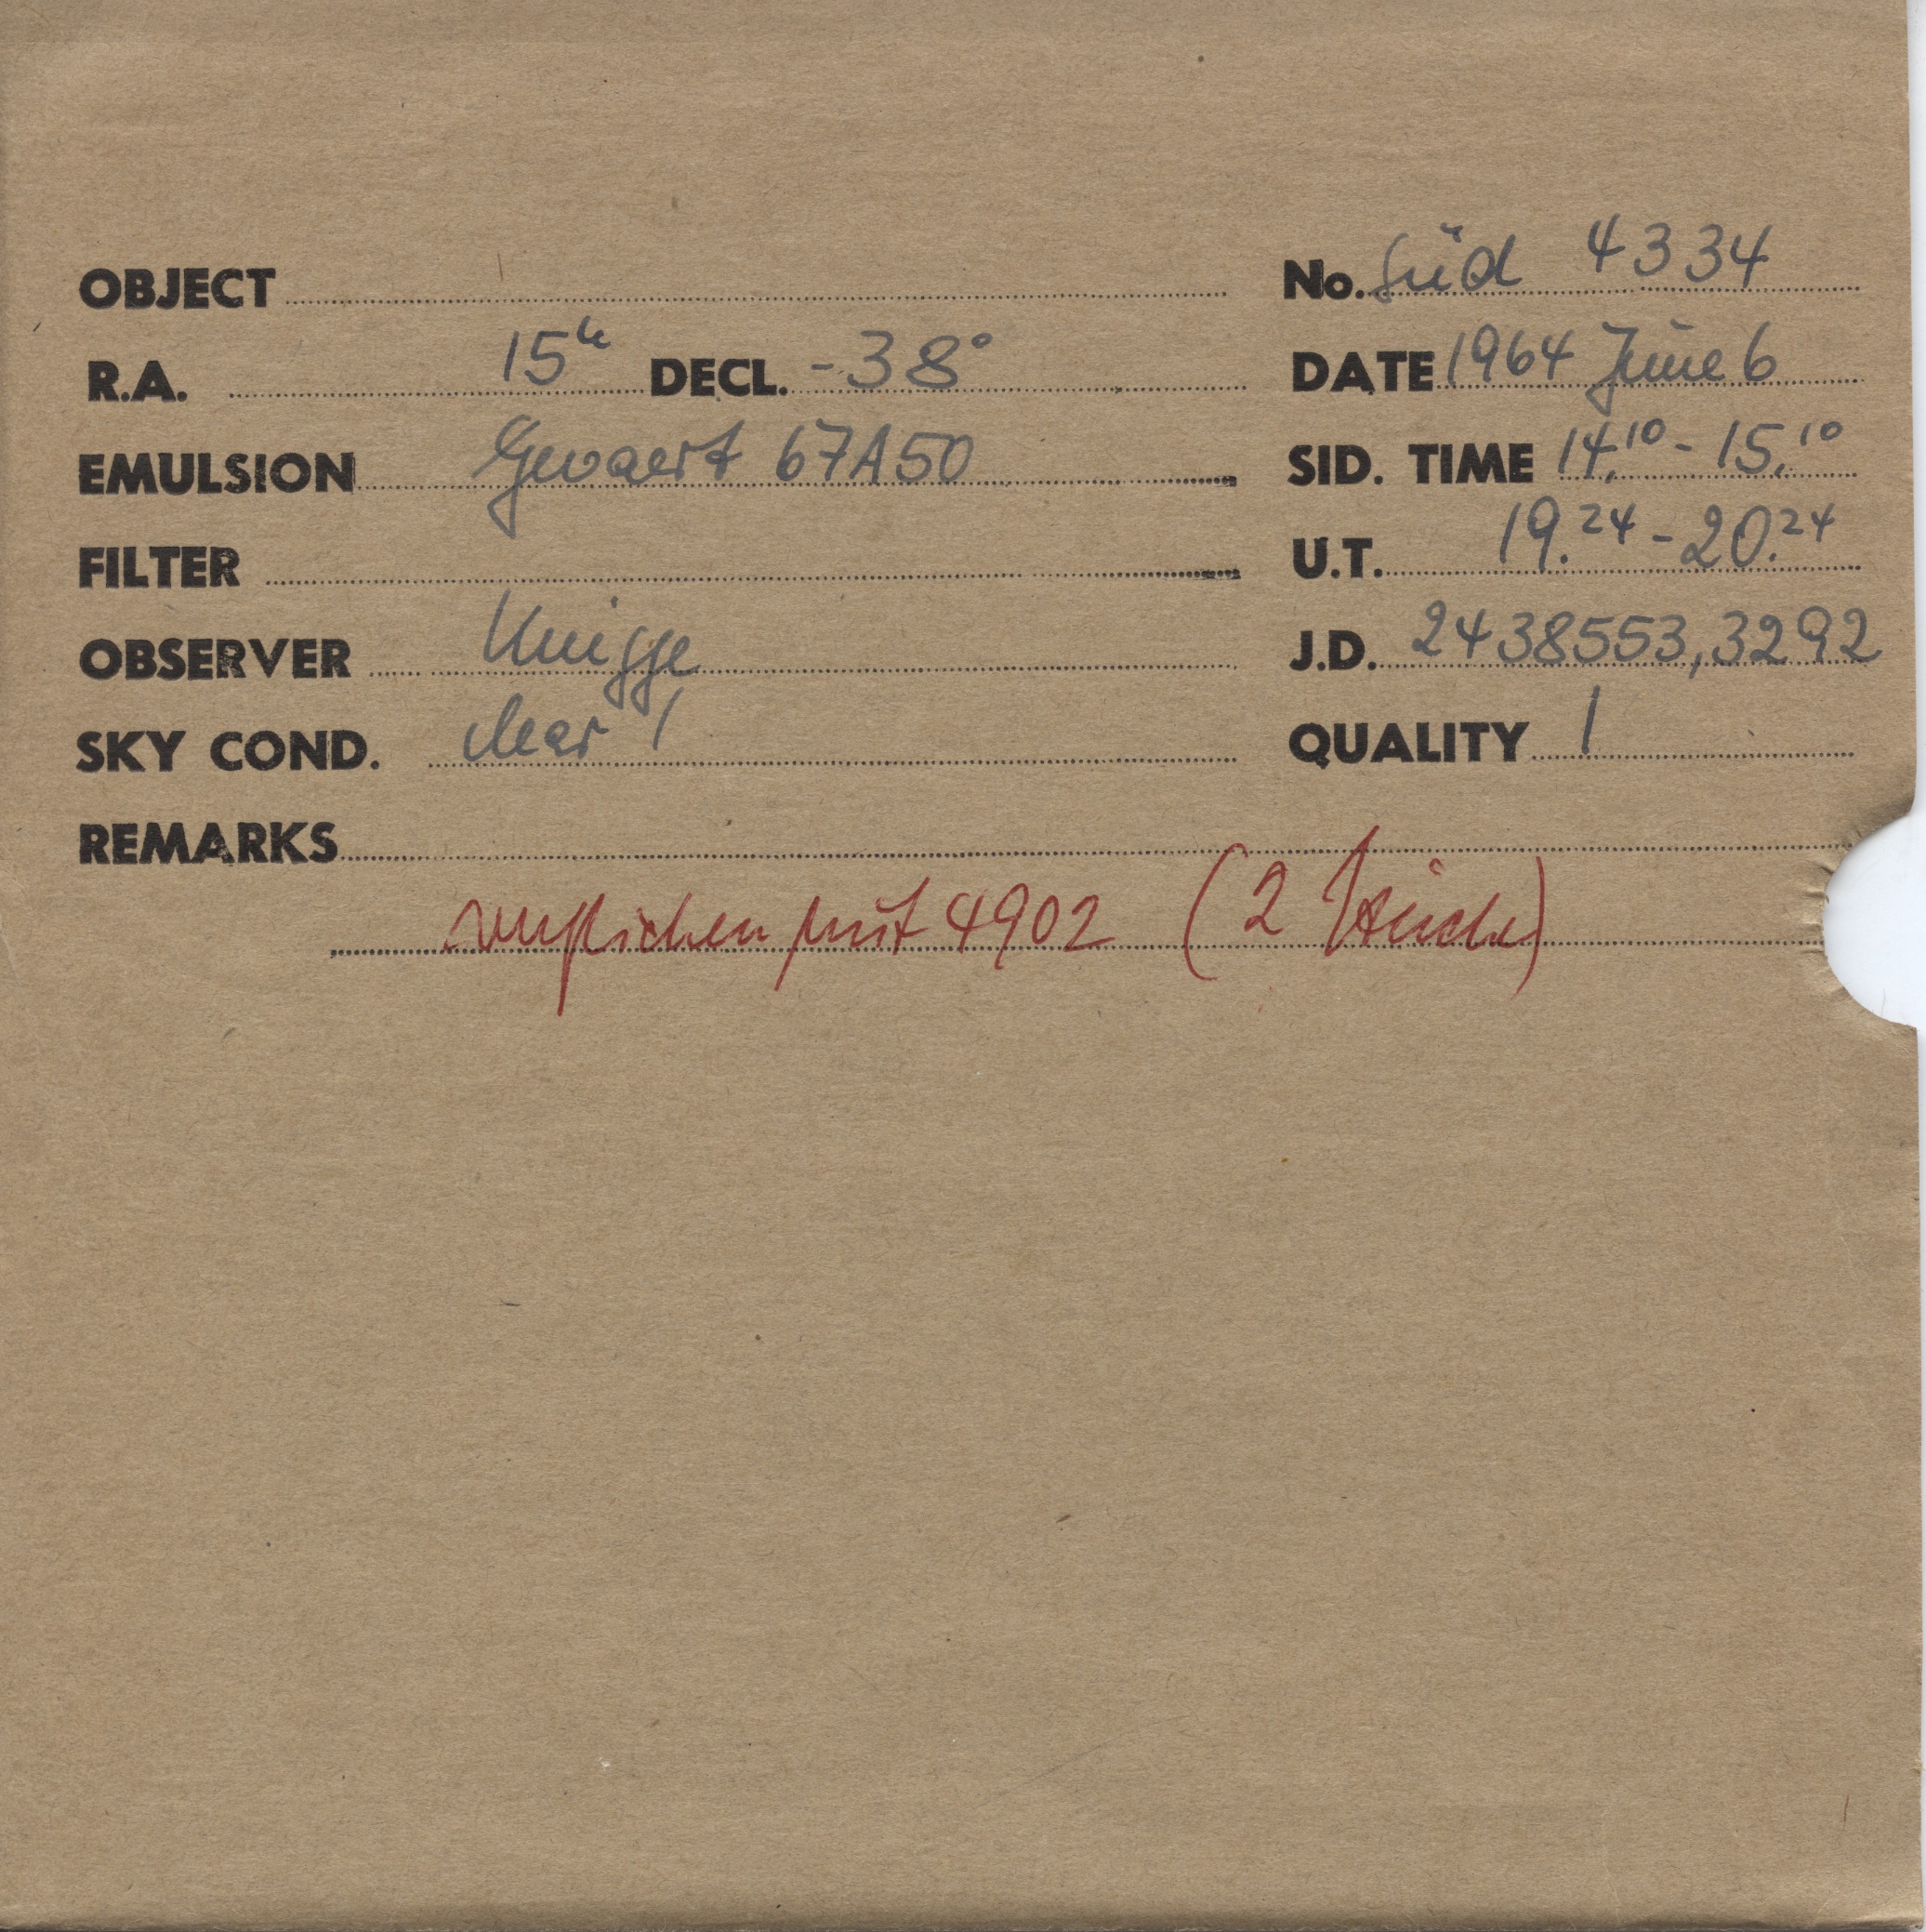 OBJECT No. Süd 4334
R.A. 15h DECL. -38° DATE 1964 June 6
EMULSION Gevaert 67A50 SID. TIME 14.10 - 15.10
FILTER U.T. 19.24 - 20.24
OBSERVER Knigge J.D. 2438553,3292
SKY COND. clear 1 QUALITY 1
REMARKS
verglichen mit 4902 (2 Striche)